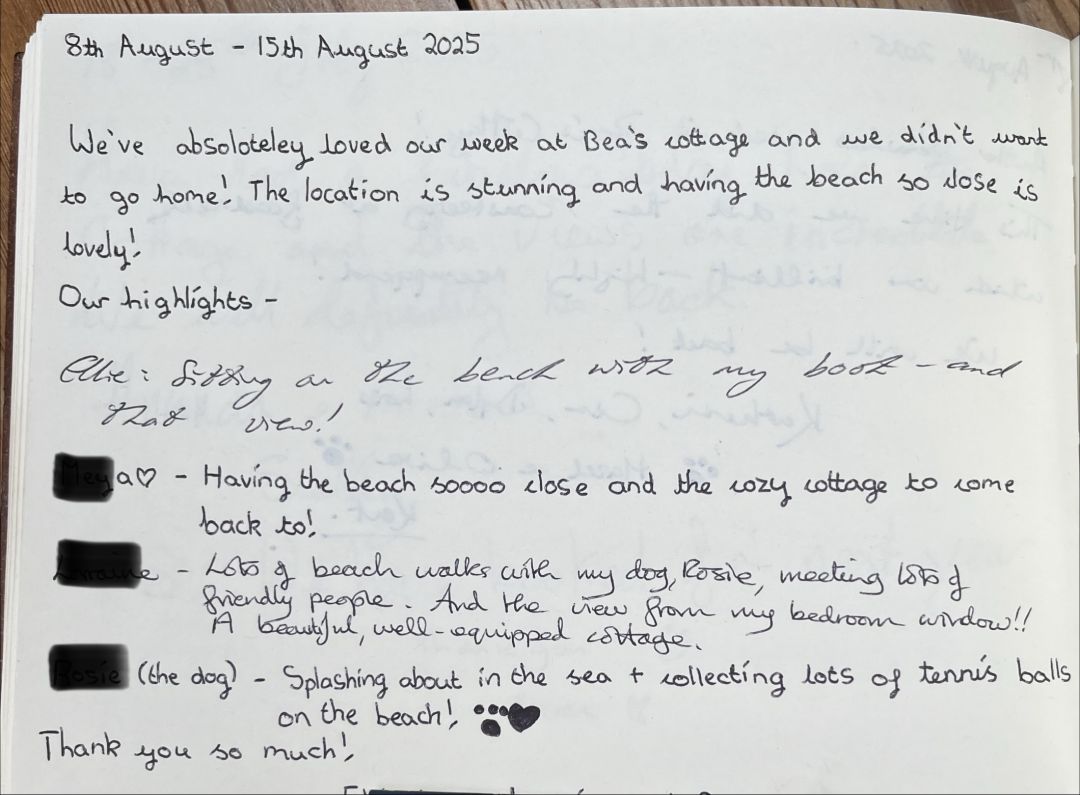 8th August - 15th August 2025
We've absoloteley loved our week at Bea's cottage and we didn't want
to go home! The location is stunning and having the beach so close is
lovely!
Our highlights -
Ellie: Sitting on the bench with my book - and
that view!
a♡ - Having the beach soooo close and the cozy cottage to come
back to!
- Lots of beach walks with my dog, Rosie, meeting lots of
friendly people. And the view from my bedroom window!!
A beautiful, well-equipped cottage.
(the dog) - Splashing about in the sea + collecting lots of tennis balls
on the beach!
Thank you so much!